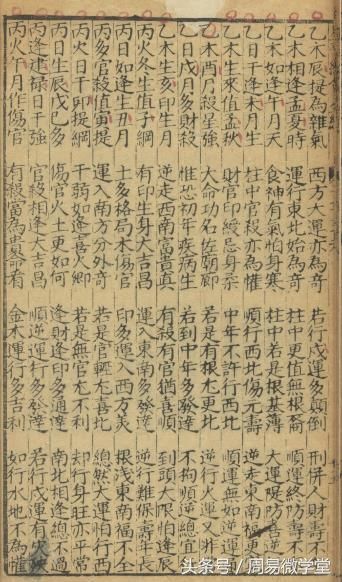 乙木辰提為雜氣 西方大運亦為奇 若行戌運多顛倒 刑併人財壽不
乙木相逢孟夏時 運行東北始為奇 柱中更值無根 順運終防壽
乙木如逢午月天 食神有氣怕身寒 柱中若是根基薄 大運防壽
乙日干逢未月生 柱中官殺亦為懽 順行西北傷元壽 逆走東南福
乙木生來值孟秋 財官印綬忌身柔 中年不許行西北 順運無如逆運
乙木酉月殺星強 大命功名佐廟廊 若是有根尤更北 逆行火運又非
乙日戌月多財殺 惟恐初年疾病生 若到中年多發達 不拘順逆總宜
乙木生亥印生月 逆走西南富貴真 有殺有官猶喜順 到頭大限怕逢辰
丙火冬生值子綱 有印生身大吉昌 運入東南多發達 逆行難保壽年長
丙日如逢生丑月 土多格局木傷官 印多運入西方美 根淺東南福不全
丙多官殺值寅提 運入南方分外奇 若是官輕尤喜北 總然大運怕行西
丙火日干卯提綱 干弱如逢喜火鄉 若是無官尤不利 却行身旺亦平常
丙日生辰戊己多 傷官火土更如何 逢財逢印多通達 南北相逢總不過
丙逢建祿日干強 官殺相逢大吉昌 順逆運行多發達 若行戌運有火殃
丙火午月作傷官 有殺當為貴命看 金木運行多吉利 如行水地不為懽
头条号 / 周易微学堂